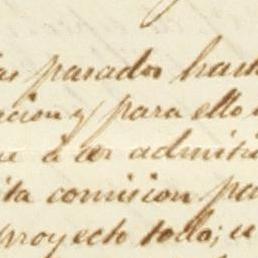 as pasados hast
acion y para ello
ue á ser admiti
ita comision pa
proyecto todo; u